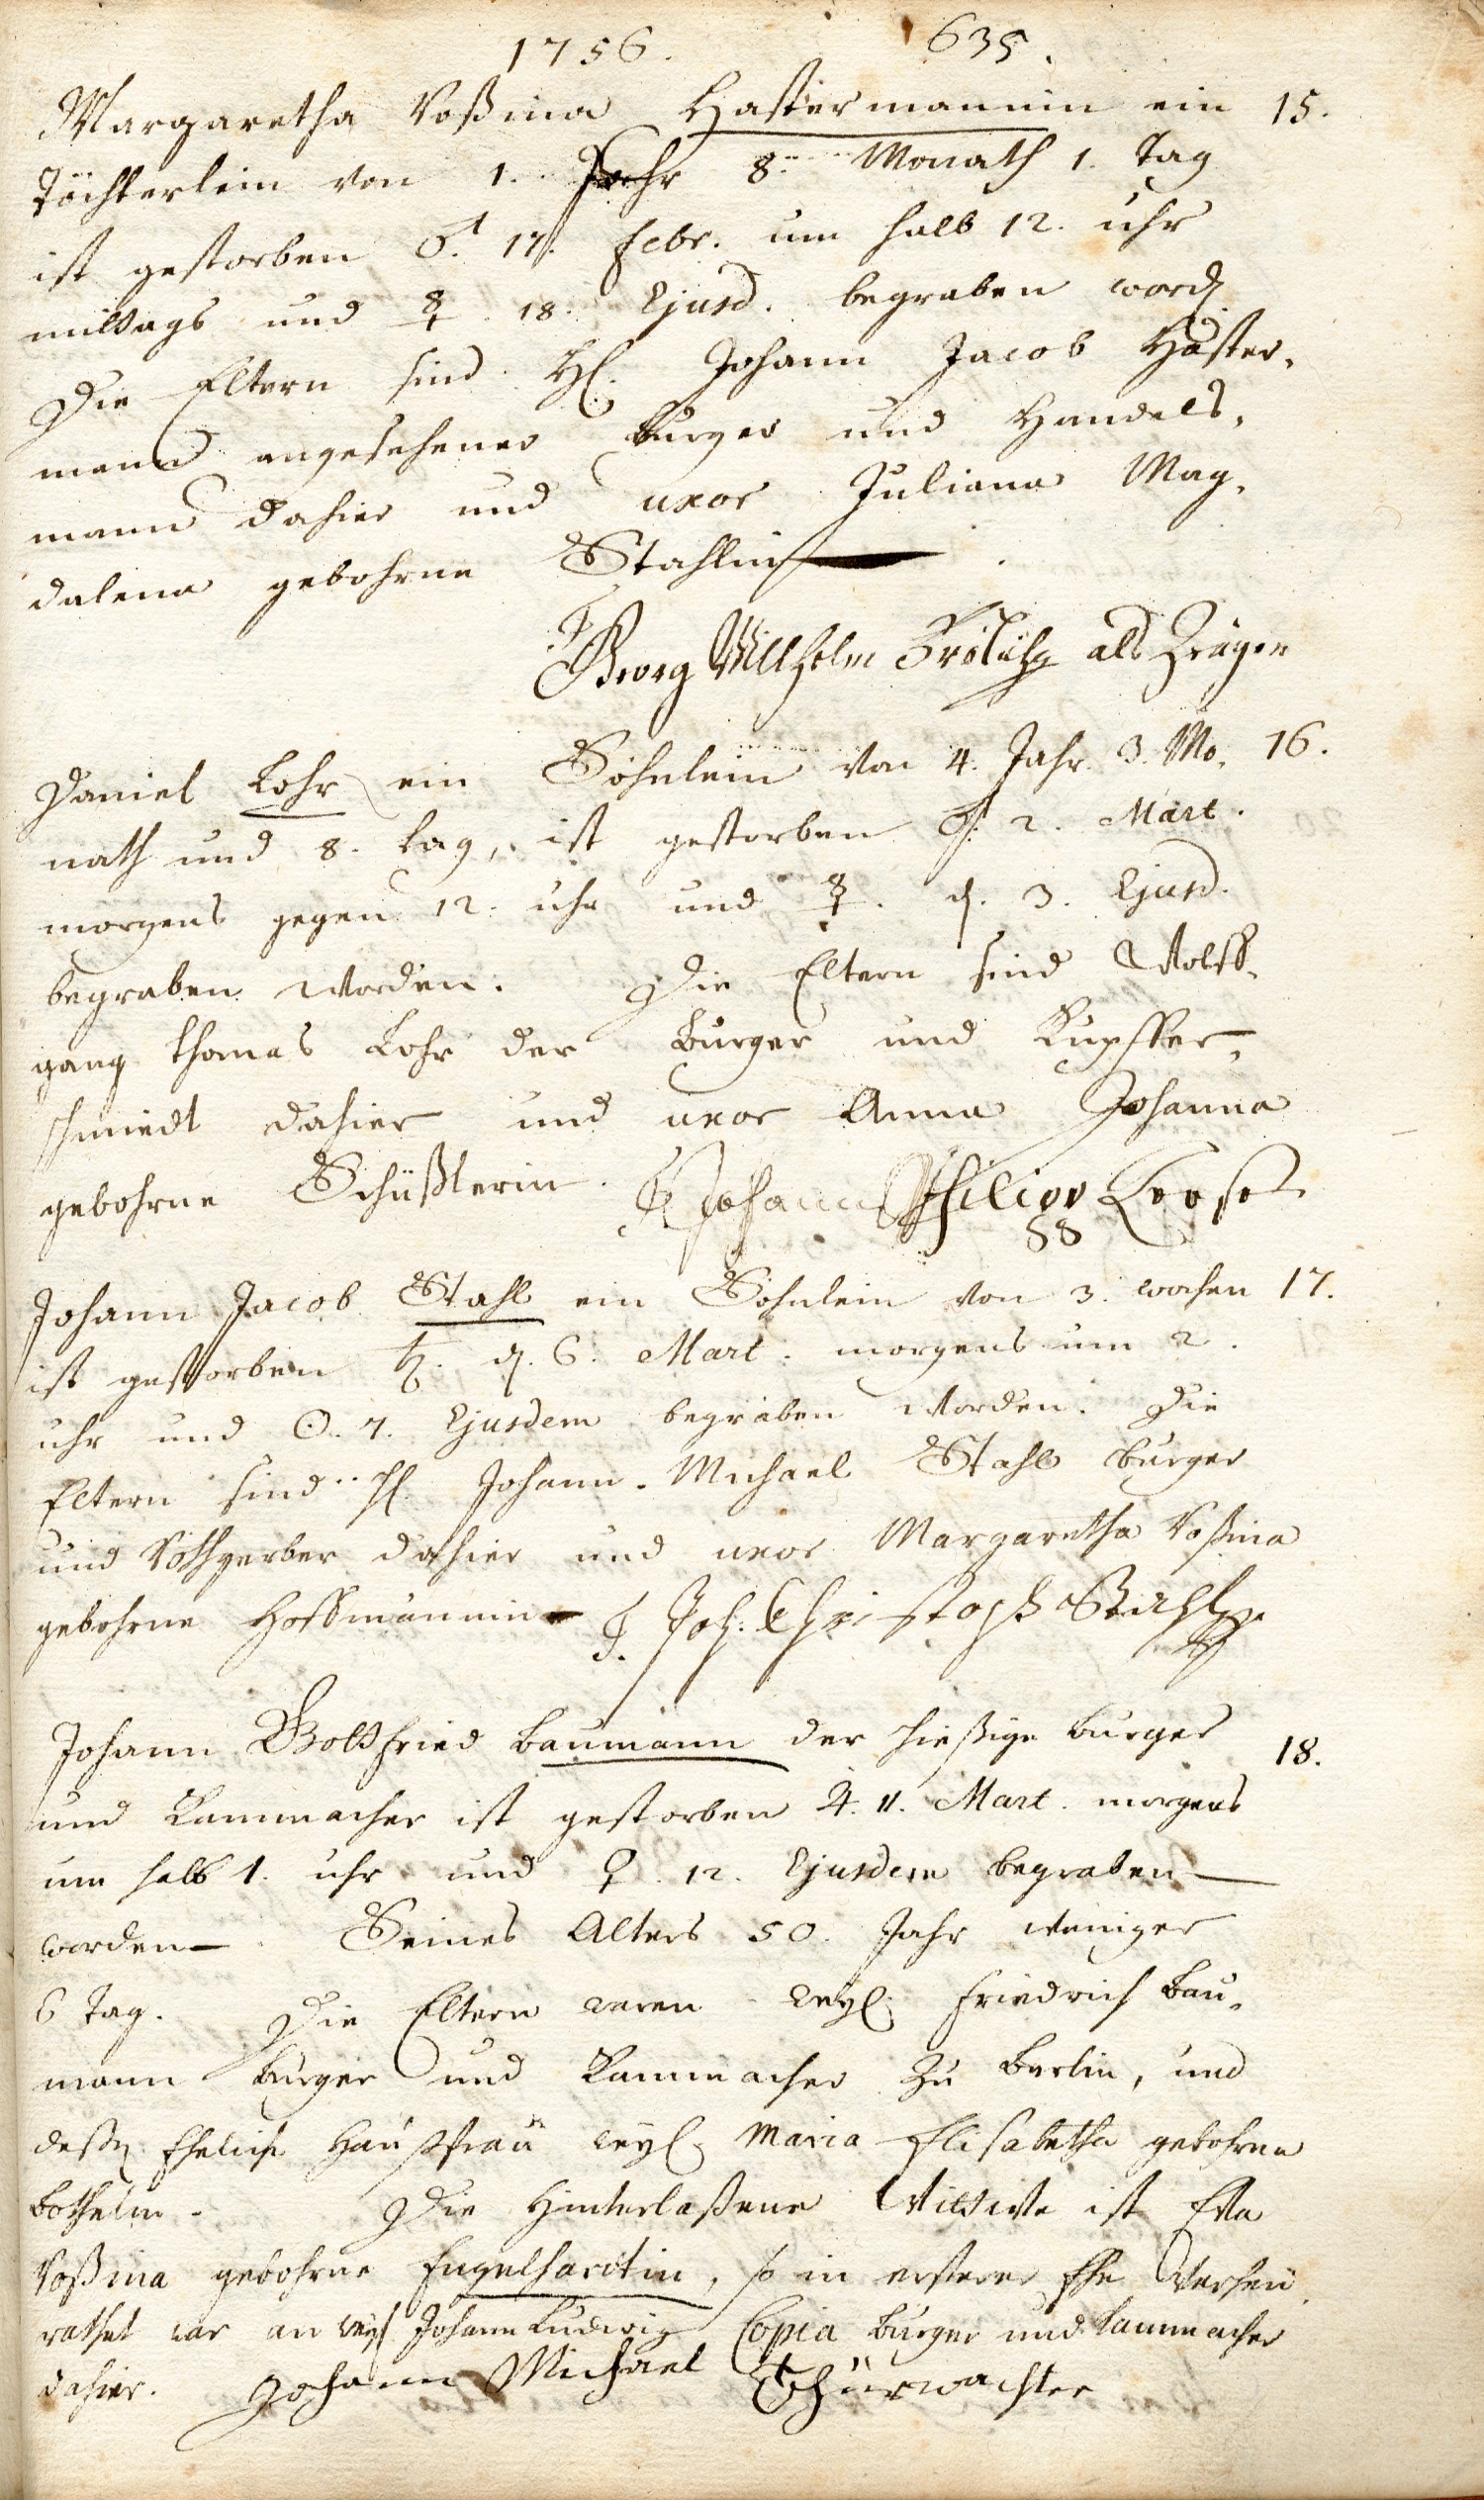 1756. 635.
Margaretha Roßina Hastermannin ein 15.
Töchterlein von 1. Jahr 8. Monath 1. Tag
ist gestorben ♂. 17. Febr. um halb 12. uhr
mittags und ☿ 18. Ejusd. begraben word
Die Eltern sind H. Johann Jacob Haster-
mann angesehener Burger und Handels-
mann dahier und uxor Juliana Mag-
dalena gebohrne Stahlin
Georg Willhelm als Zeugen
Daniel Lohr ein Söhnlein von 4. Jahr 3. Mo- 16.
nath und 8. tag, ist gestorben ♂. 2. Mart.
morgens gegen 12. uhr und ☿. d. 3. Ejusd.
begraben worden. Die Eltern sind Wolff-
gang thomas Lohr der Burger und Kupffer-
schmiedt dahier und uxor Anna Johanna
gebohrne Schüßlerin. Johann Philipp Loose
Johann Jacob Stahl ein Söhnlein von 3. wochen 17.
ist gestorben ♄. d. 6. Mart. morgens um 2.
uhr und ☉. 7. Ejusdem begraben worden. Die
Eltern sind H. Johann Michael Stahl burger
und Rothgerber dahier und uxor Margaretha Roßina
gebohrne Hoffmännin J. Joh: Christoph Stahl
Johann Gottfried Baumann der hießige burger 18.
und Kammacher ist gestorben ♃. 11. Mart. morgens
um halb 1. uhr und ♀. 12. Ejusdem begraben
worden. Seines Alters 50. Jahr weniger
6 Tag. Die Eltern waren weyl. Friedrich Bau-
mann burger und Kammacher zu Berlin, und
deßen Eheliche Haußfrau weyl. Maria Elisabetha gebohrne
Die Hinterlaßene Wittwe ist Eva
Roßina gebohrne Engelhardtin, so in ersterer Ehe verheu-
rathet war an weyl. Johann Ludwig Copia burger und Kammacher
dahier. Johann Michael Thürwachter